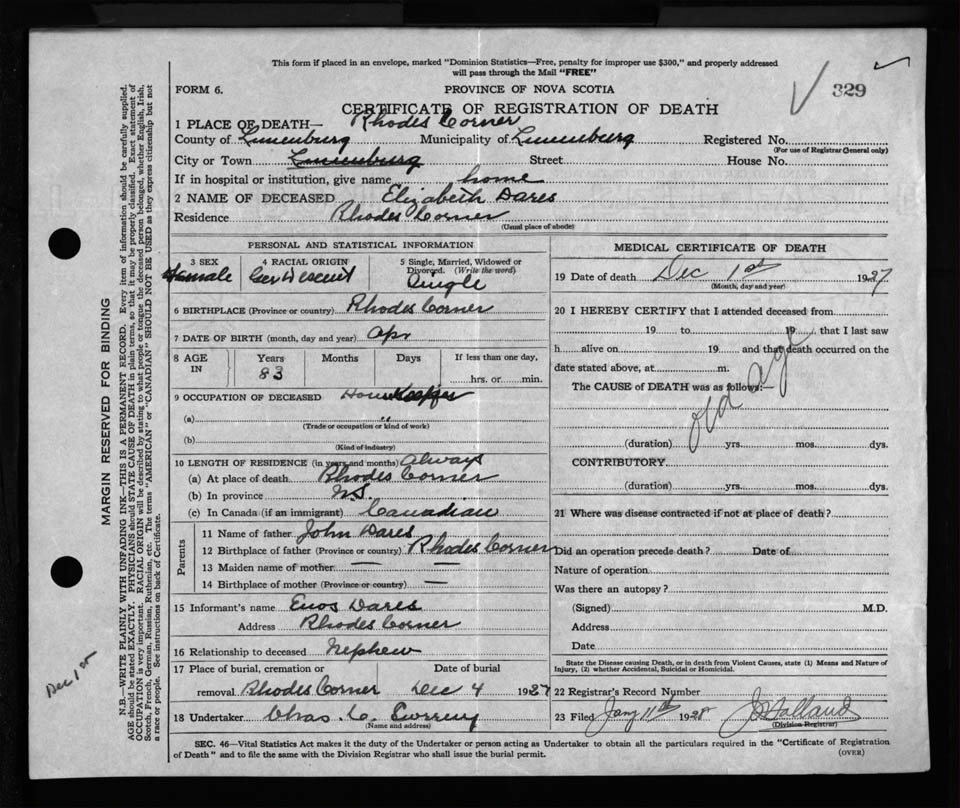 This form if placed in an envelope, marked "Dominion Statistics—Free, penalty for improper use $300," and properly addressed
will pass through the Mail "FREE"
FORM 6. PROVINCE OF NOVA SCOTIA 329
CERTIFICATE OF REGISTRATION OF DEATH
1 PLACE OF DEATH— Rhodes Corner
County of Lunenburg Municipality of Lunenburg Registered No.
(For use of Registrar General only)
City or Town Lunenburg Street House No.
If in hospital or institution, give name home
2 NAME OF DECEASED Elizabeth Dares
Residence Rhodes Corner
(Usual place of abode)
PERSONAL AND STATISTICAL INFORMATION
3 SEX 4 RACIAL ORIGIN 5 Single, Married, Widowed or Divorced. (Write the word)
Female Ger Descent Single
6 BIRTHPLACE (Province or country) Rhodes Corner
7 DATE OF BIRTH (month, day and year) Apr
8 AGE IN Years Months Days If less than one day,
83 hrs. or min.
9 OCCUPATION OF DECEASED Housekeeper
(a) "
(Trade or occupation or kind of work)
(b)
(Kind of industry)
10 LENGTH OF RESIDENCE (in years and months) Always
(a) At place of death Rhodes Corner
(b) In province N.S.
(c) In Canada (if an immigrant) Canadian
Parents
11 Name of father John Dares
12 Birthplace of father (Province or country) Rhodes Corner
13 Maiden name of mother — —
14 Birthplace of mother (Province or country) —
15 Informant's name Enos Dares
Address Rhodes Corner
16 Relationship to deceased Nephew
17 Place of burial, cremation or Date of burial
removal Rhodes Corner Dec 4 1927
18 Undertaker Chas. C.
(Name and address)
MEDICAL CERTIFICATE OF DEATH
19 Date of death Dec 1st 1927
(Month, day and year)
20 I HEREBY CERTIFY that I attended deceased from
19 to 19 , that I last saw
h alive on 19 and that death occurred on the
date stated above, at m.
The CAUSE of DEATH was as follows:—
old age
(duration) yrs. mos. dys.
CONTRIBUTORY
(duration) yrs. mos. dys.
21 Where was disease contracted if not at place of death?
Did an operation precede death? Date of
Nature of operation
Was there an autopsy?
(Signed) M.D.
Address
Date
State the Disease causing Death, or in death from Violent Causes, state (1) Means and Nature of
Injury, (2) whether Accidental, Suicidal or Homicidal.
22 Registrar's Record Number
23 Filed Jany 11th 1928
(Division Registrar)
SEC. 46—Vital Statistics Act makes it the duty of the Undertaker or person acting as Undertaker to obtain all the particulars required in the "Certificate of Registration
of Death" and to file the same with the Division Registrar who shall issue the burial permit.
(OVER)
MARGIN RESERVED FOR BINDING
N.B.—WRITE PLAINLY WITH UNFADING INK—THIS IS A PERMANENT RECORD. Every item of information should be carefully supplied.
AGE should be stated EXACTLY. PHYSICIANS should STATE CAUSE OF DEATH in plain terms, so that it may be properly classified. Exact statement of
OCCUPATION is very important. RACIAL ORIGIN will be described by stating to what people or tongue the deceased person belonged, whether English, Irish,
Scotch, French, German, Russian, Ruthenian, etc. The terms "AMERICAN" or "CANADIAN" SHOULD NOT BE USED as they express citizenship but not
a race or people. See instructions on back of Certificate.
Dec 1st